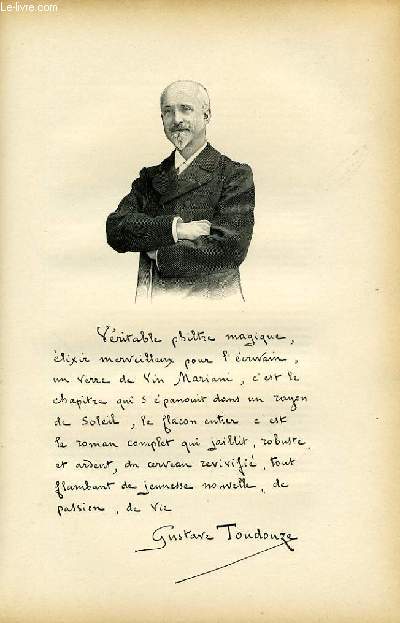 © Le-livre.com
Véritable philtre magique,
élixir merveilleux pour l'écrivain,
un verre de Vin Mariani, c'est le
chapitre qui s'épanouit dans un rayon
de Soleil, le flacon entier c'est
le roman complet qui jaillit, robuste
et ardent, du cerveau revivifié, tout
flambant de jeunesse nouvelle, de
passion, de vie
Gustave Toudouze